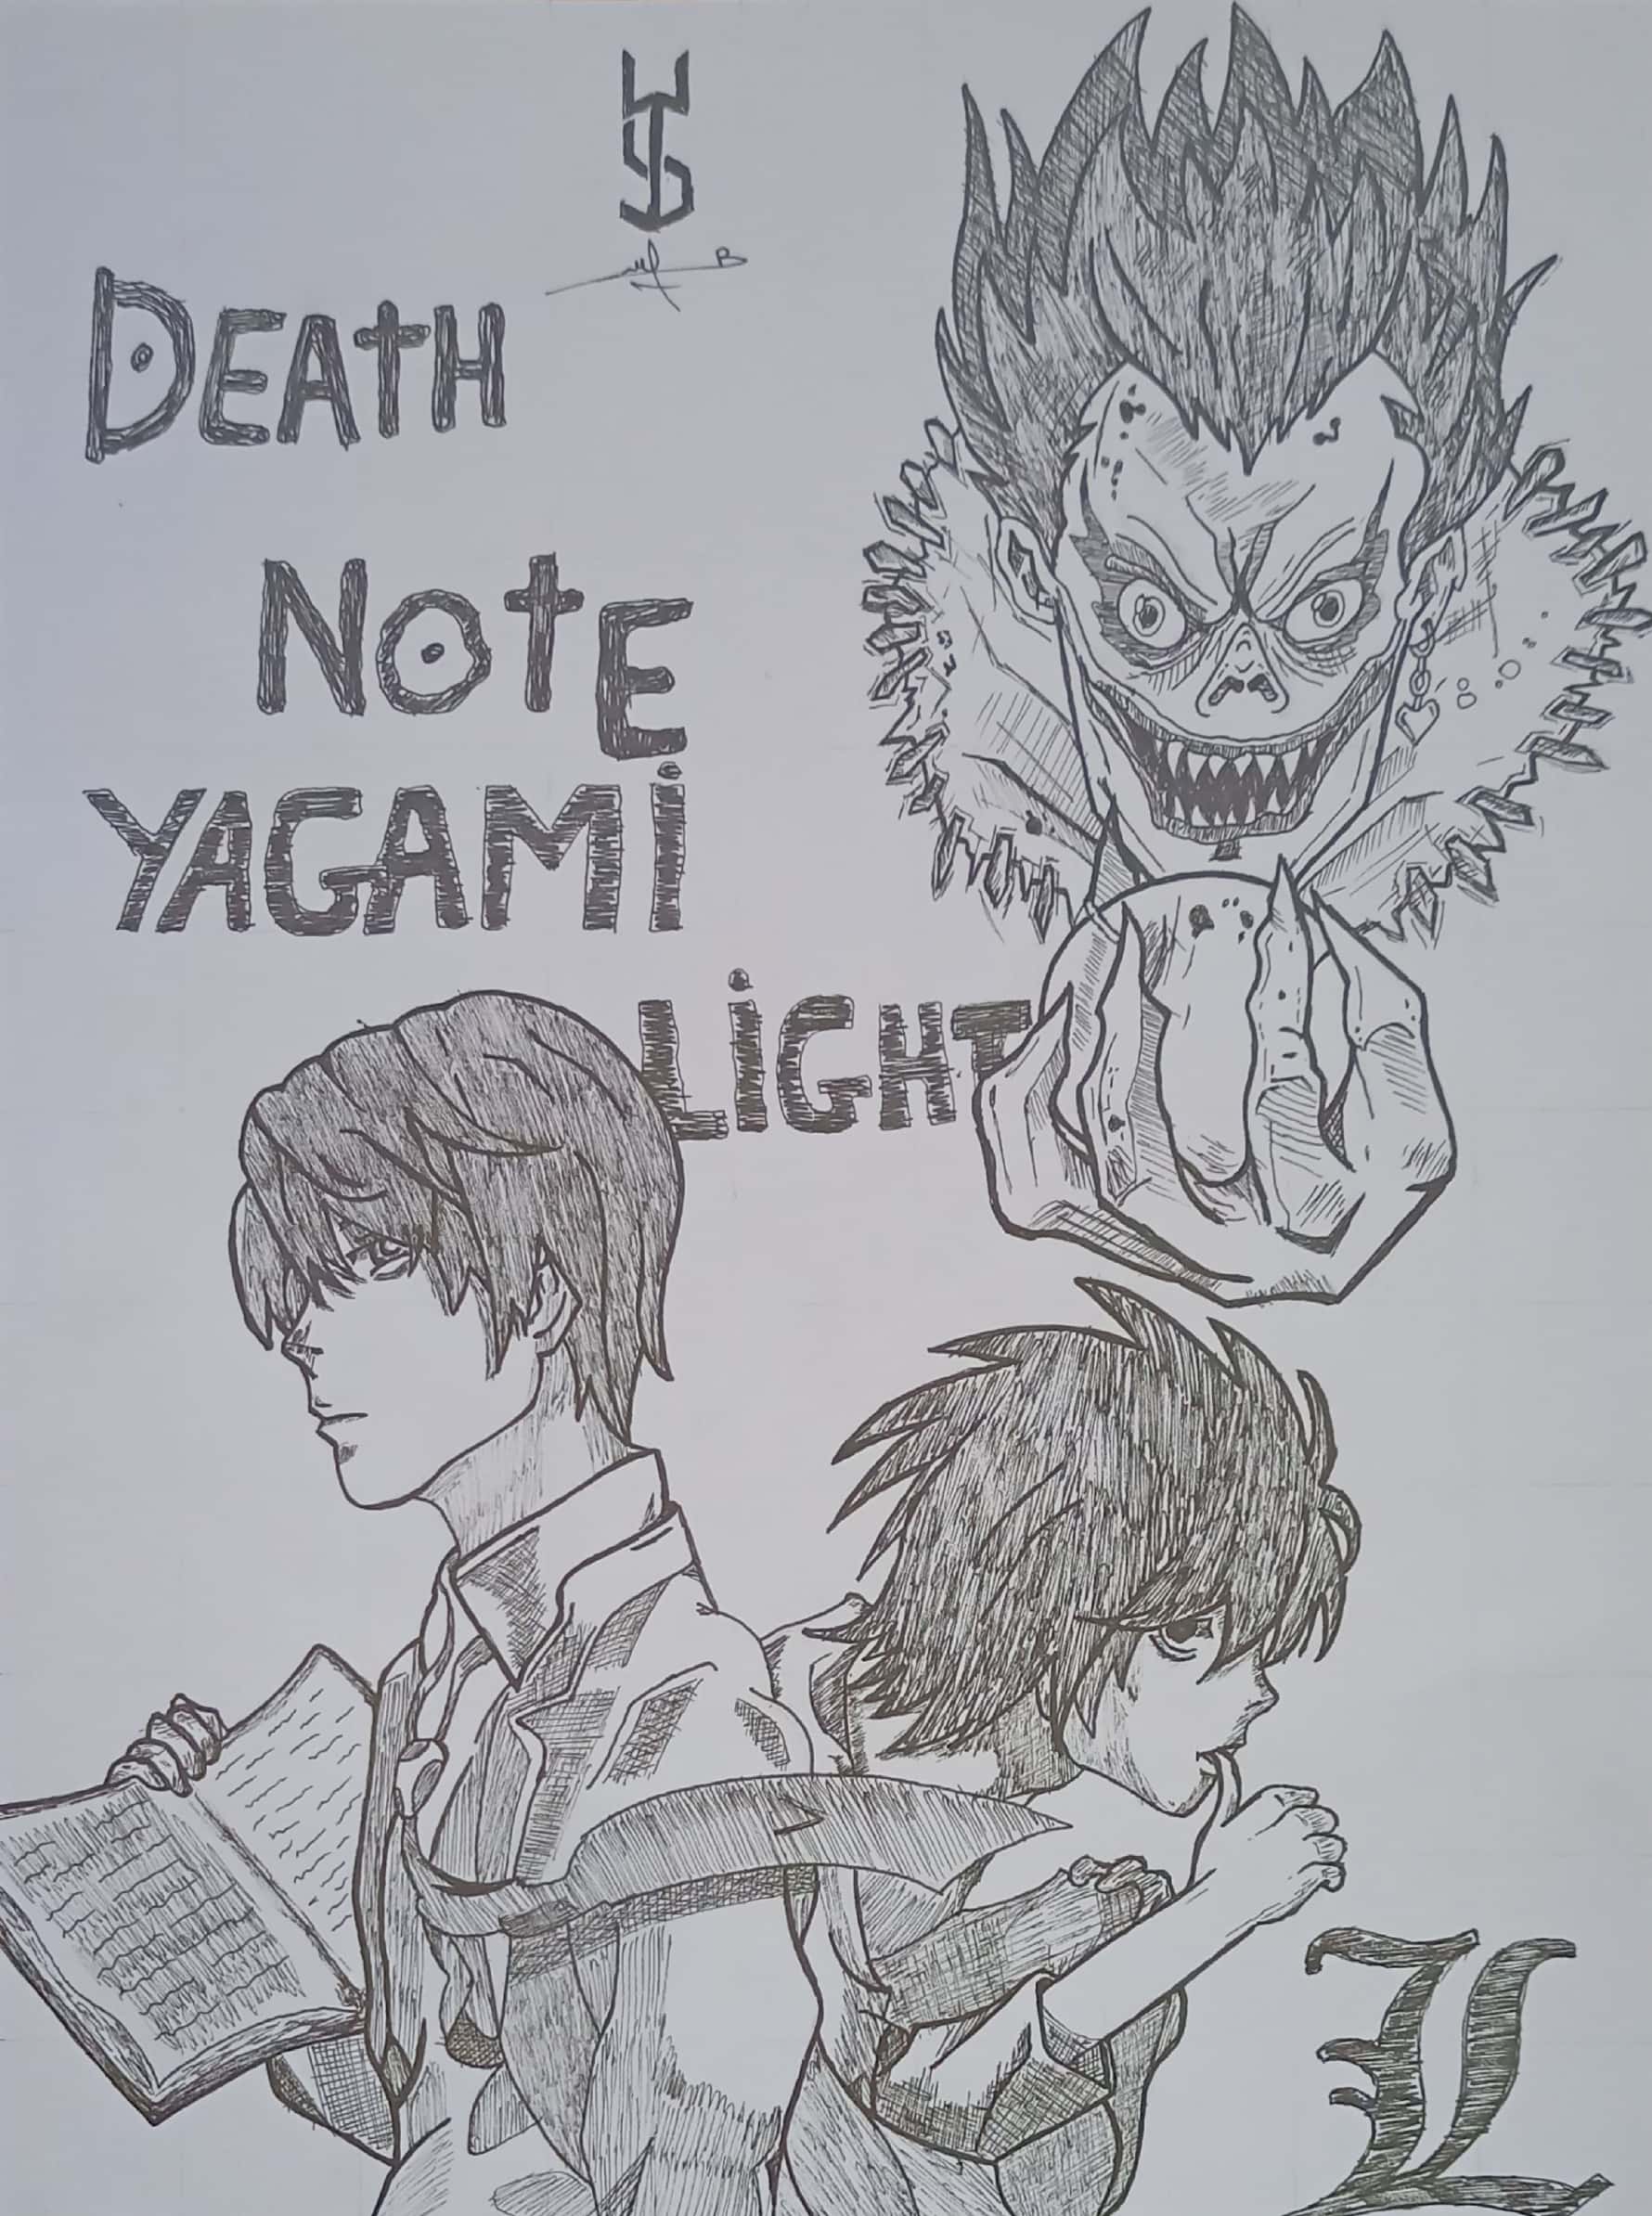 DEATH
NOTE
YAGAMi
LiGHT
L